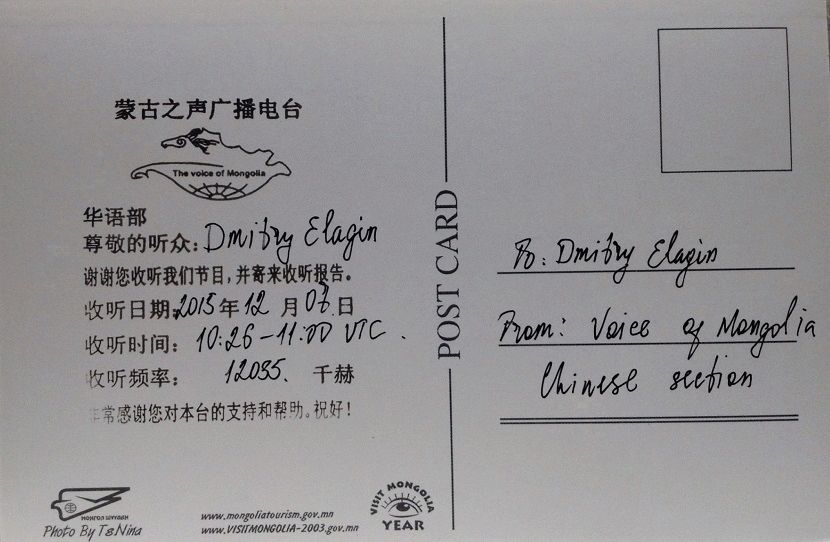 蒙古之声广播电台
The voice of Mongolia
华语部
尊敬的听众: Dmitry Elagin
谢谢您收听我们节目,并寄来收听报告。
收听日期: 2015年12月07日
收听时间: 10:26-11:00 UTC.
收听频率: 12035. 千赫
非常感谢您对本台的支持和帮助。祝好!
МОНГОЛ ШУУДАН
Photo By Ts.Nina
www.mongoliatourism.gov.mn
www.VISITMONGOLIA-2003.gov.mn
VISIT MONGOLIA
YEAR
POST CARD
To: Dmitry Elagin
From: Voice of Mongolia
Chinese section